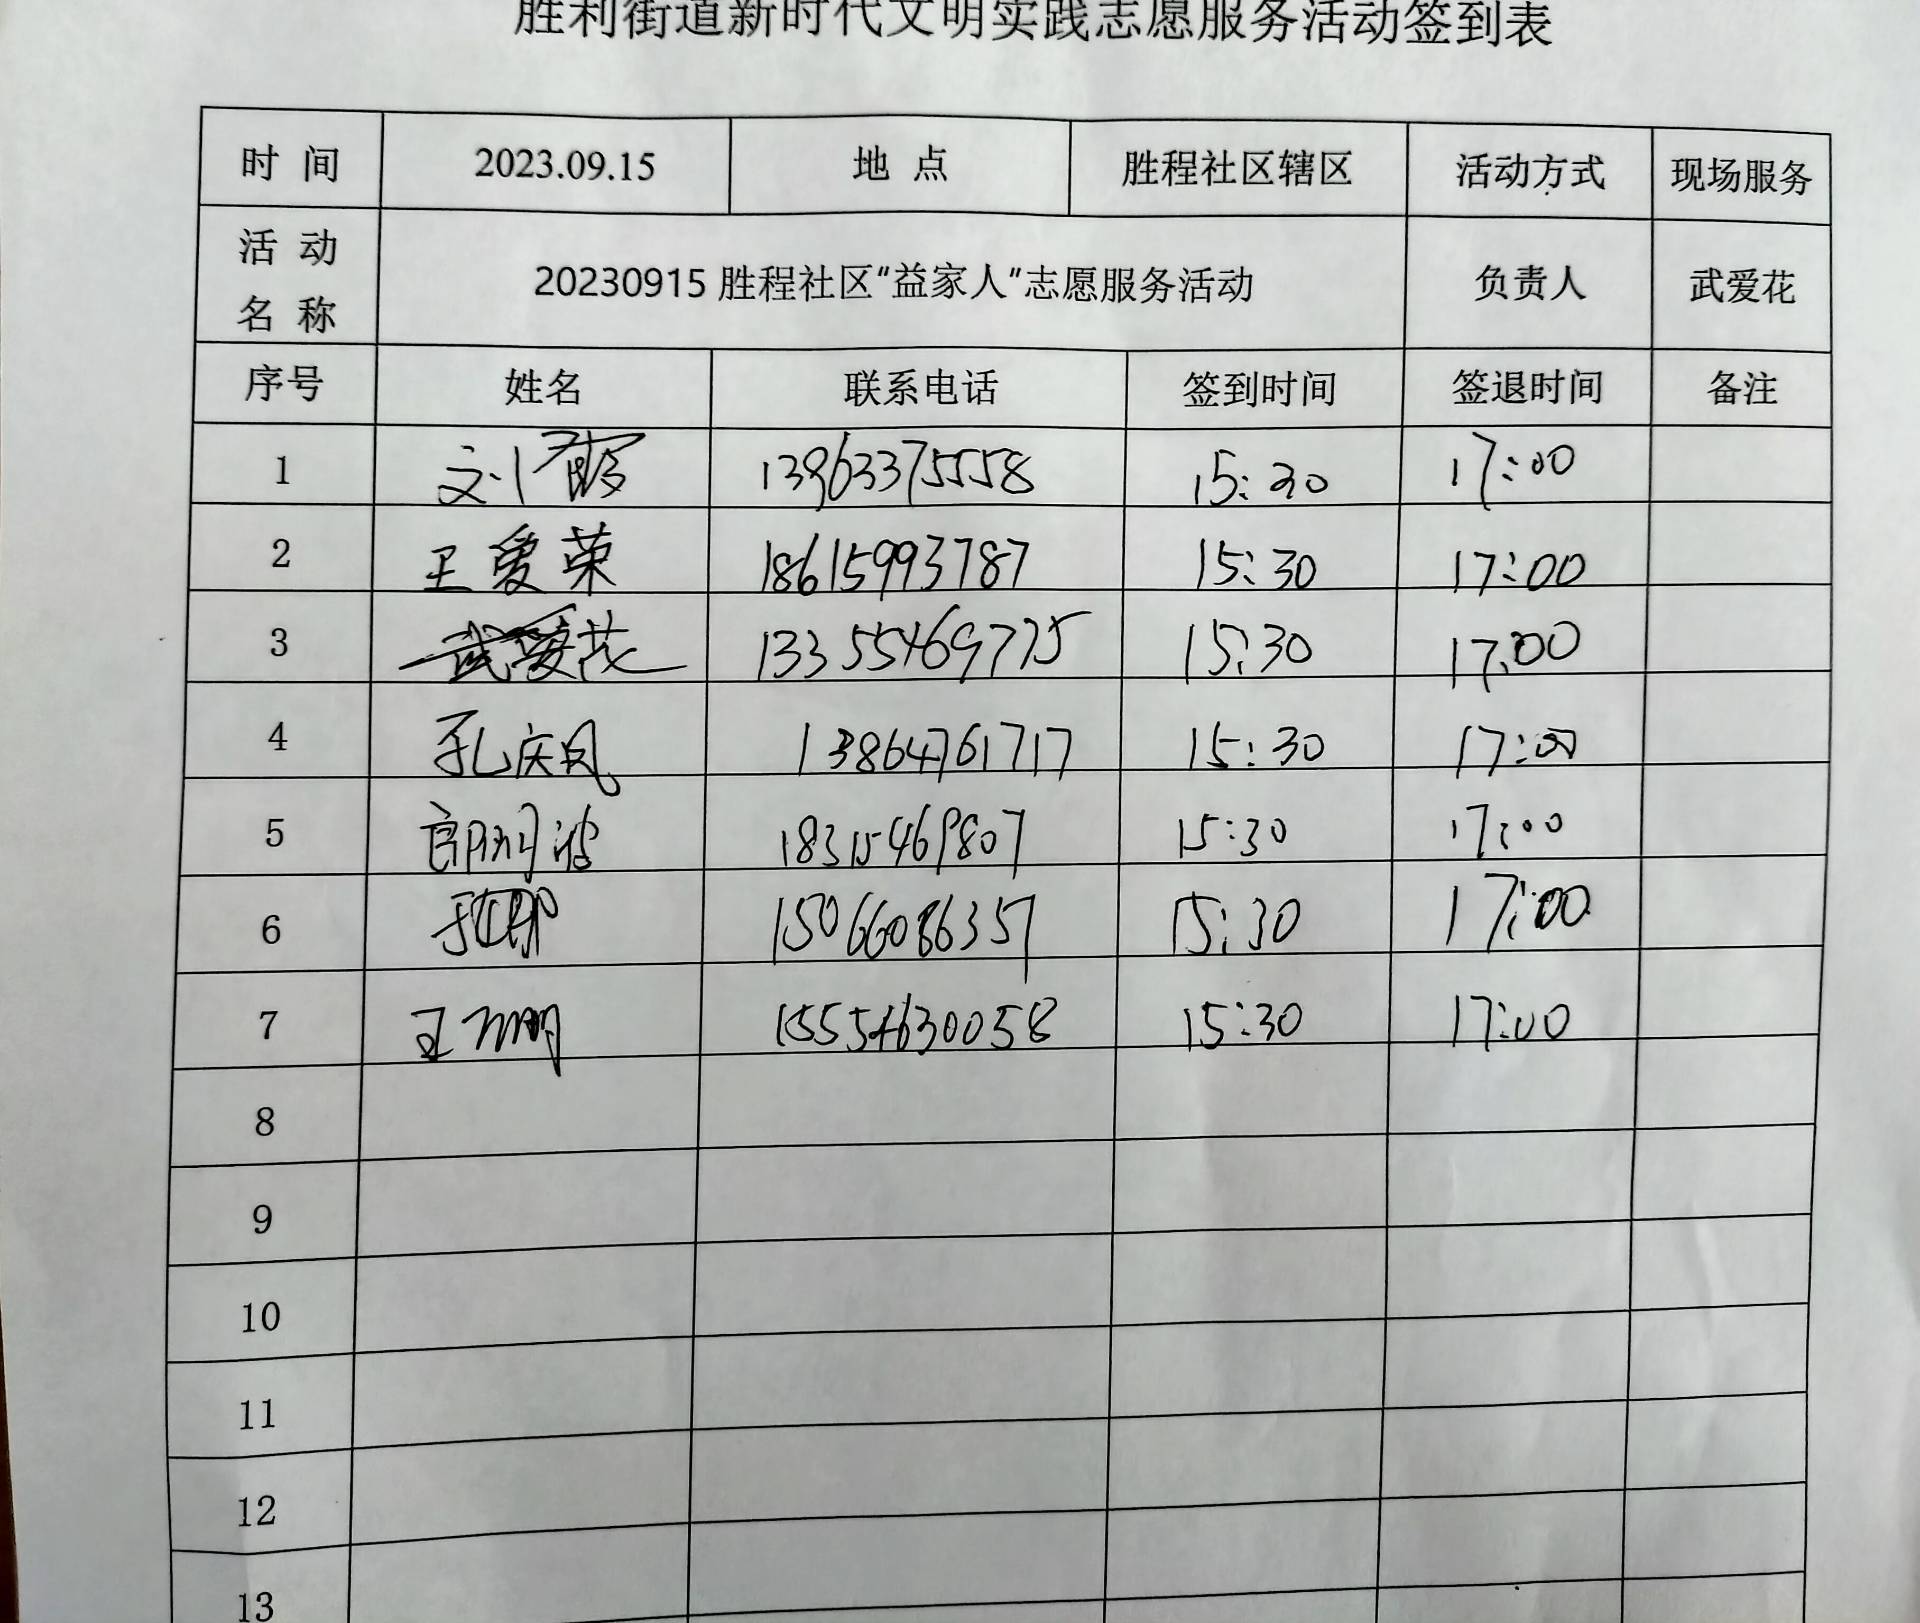 胜利街道新时代文明实践志愿服务活动签到表
时 间 2023.09.15 地 点 胜程社区辖区 活动方式 现场服务
活 动 名 称 20230915 胜程社区“益家人”志愿服务活动 负责人 武爱花
序号 姓名 联系电话 签到时间 签退时间 备注
1 刘霞 13963375558 15:30 17:00
2 王爱荣 18615993787 15:30 17:00
3 武爱花 13355469775 15:30 17:00
4 孔庆凤 13864761717 15:30 17:00
5 18315469807 15:30 17:00
6 15066086357 15:30 17:00
7 15554630058 15:30 17:00
8
9
10
11
12
13